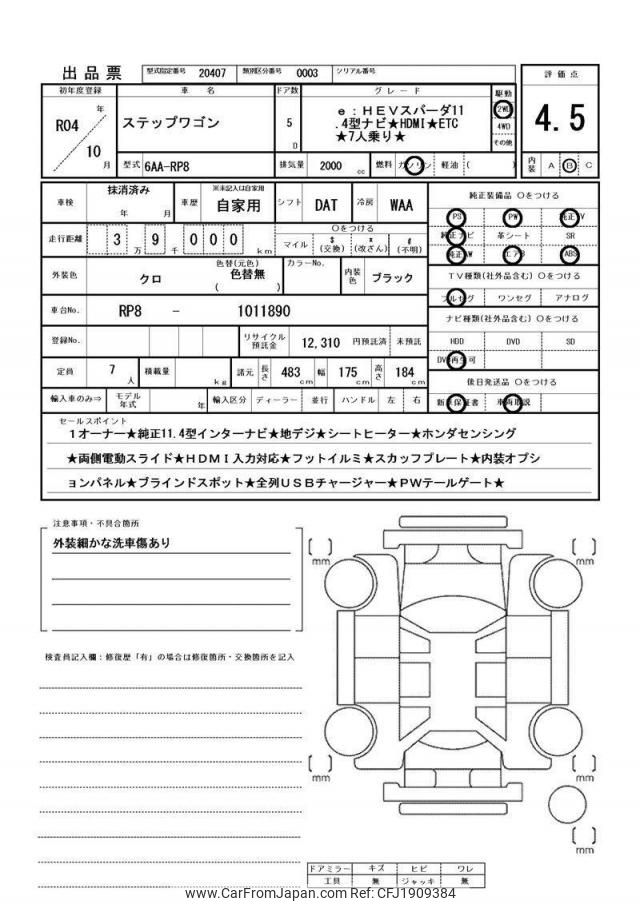 出品票 型式指定番号 20407 類別区分番号 0003 シリアル番号
評価点
4.5
内装 A B C
初年度登録 車名 ドア数 グレード 駆動
R04 年
10 月
ステップワゴン
5 D
e:HEVスパーダ11
.4型ナビ★HDMI★ETC
★7人乗り★
2WD
4WD
その他
型式 6AA-RP8 排気量 2000 cc 燃料 ガソリン 軽油 ( )
車検 抹消済み 年 月 車歴 ※未記入は自家用 自家用 シフト DAT 冷房 WAA
走行距離 3 9 万 千 0 0 0 km
○をつける
マイル $(交換) *(改ざん) #(不明)
外装色 クロ 色替(元色) 色替無 ( ) カラーNo. 内装色 ブラック
車台No. RP8 - 1011890
登録No. リサイクル預託金 12,310 円預託済 未預託
定員 7 人 積載量 kg 諸元 長さ 483 cm 幅 175 cm 高さ 184 cm
輸入車のみ⇒ モデル年式 年 輸入区分 ディーラー 並行 ハンドル 左 右
純正装備品 ○をつける
PS PW 純正TV
純正ナビ 革シート SR
純正AW エアB ABS
TV種類(社外品含む) ○をつける
フルセグ ワンセグ アナログ
ナビ種類(社外品含む) ○をつける
HDD DVD SD
DVD再生可
後日発送品 ○をつける
新車保証書 車両取説
セールスポイント
1オーナー★純正11.4型インターナビ★地デジ★シートヒーター★ホンダセンシング
★両側電動スライド★HDMI入力対応★フットイルミ★スカッフプレート★内装オプシ
ョンパネル★ブラインドスポット★全列USBチャージャー★PWテールゲート★
注意事項・不具合箇所
外装細かな洗車傷あり
検査員記入欄:修復歴「有」の場合は修復箇所・交換箇所を記入
[ ] mm
[ ] mm
[ ] mm
[ ] mm
[ ] mm
ドアミラー キズ ヒビ ワレ
工具 無 ジャッキ 無
www.CarFromJapan.com Ref: CFJ1909384